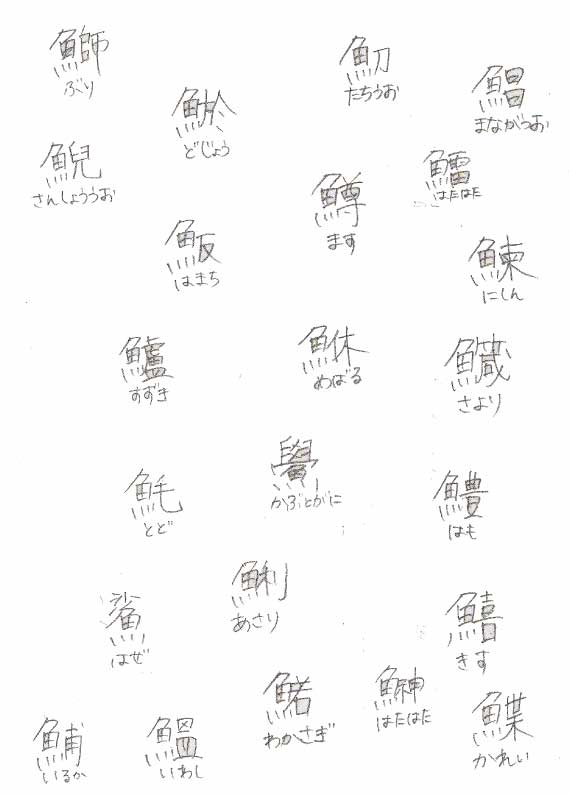 鰤
ぶり
魛
たちうお
鯧
まながつお
鯲
どじょう
鯢
さんしょううお
鱩
はたはた
鱒
ます
魬
はまち
鰊
にしん
鱸
すずき
鮴
めばる
さより
魹
とど
鱟
かぶとがに
鱧
はも
鯏
あさり
鯊
はぜ
鱚
きす
鰙
わかさぎ
鰰
はたはた
鯆
いるか
鰮
いわし
鰈
かれい